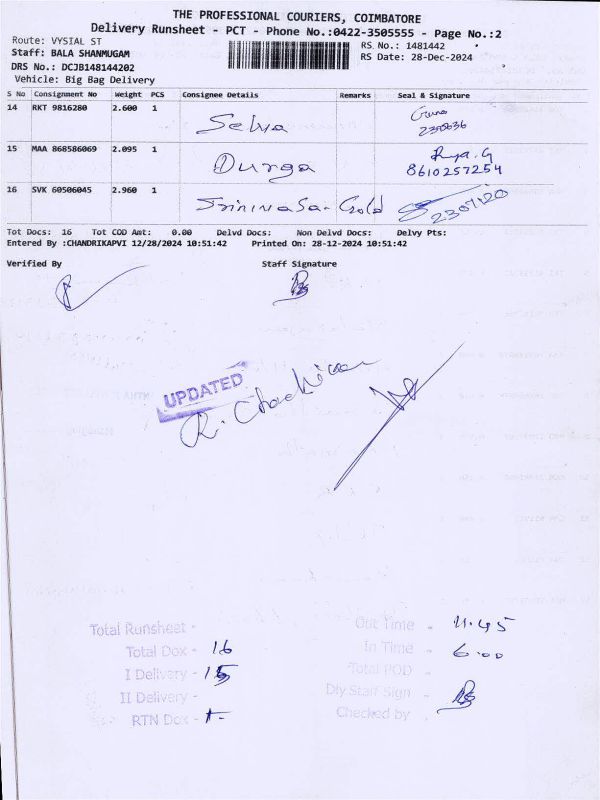 THE PROFESSIONAL COURIERS, COIMBATORE
Delivery Runsheet - PCT - Phone No.:0422-3505555 - Page No.:2
Route: VYSIAL ST
RS No.: 1481442
Staff: BALA SHANMUGAM
RS Date: 28-Dec-2024
DRS No.: DCJB148144202
Vehicle: Big Bag Delivery
S No Consignment No Weight PCS Consignee Details Remarks Seal & Signature
14 RKT 9816280 2.600 1 Selva
15 MAA 868586069 2.095 1 Durga 8610257254
16 SVK 60506045 2.960 1 Srinivasa-Gold 2307120
Tot Docs: 16 Tot COD Amt: 0.00 Delvd Docs: Non Delvd Docs: Delvy Pts:
Entered By :CHANDRIKAPVI 12/28/2024 10:51:42 Printed On: 28-12-2024 10:51:42
Verified By Staff Signature
UPDATED
Total Runsheet - Out Time - 11.45
Total Dox - 16 In Time - 6.00
I Delivery - 15 Total POD -
II Delivery - Dly Staff Sign -
RTN Dox - Checked by -